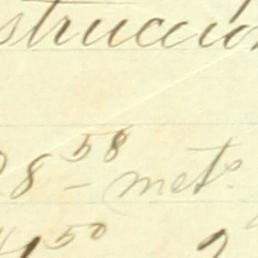 struccion
28 58 - mets
4 50 2